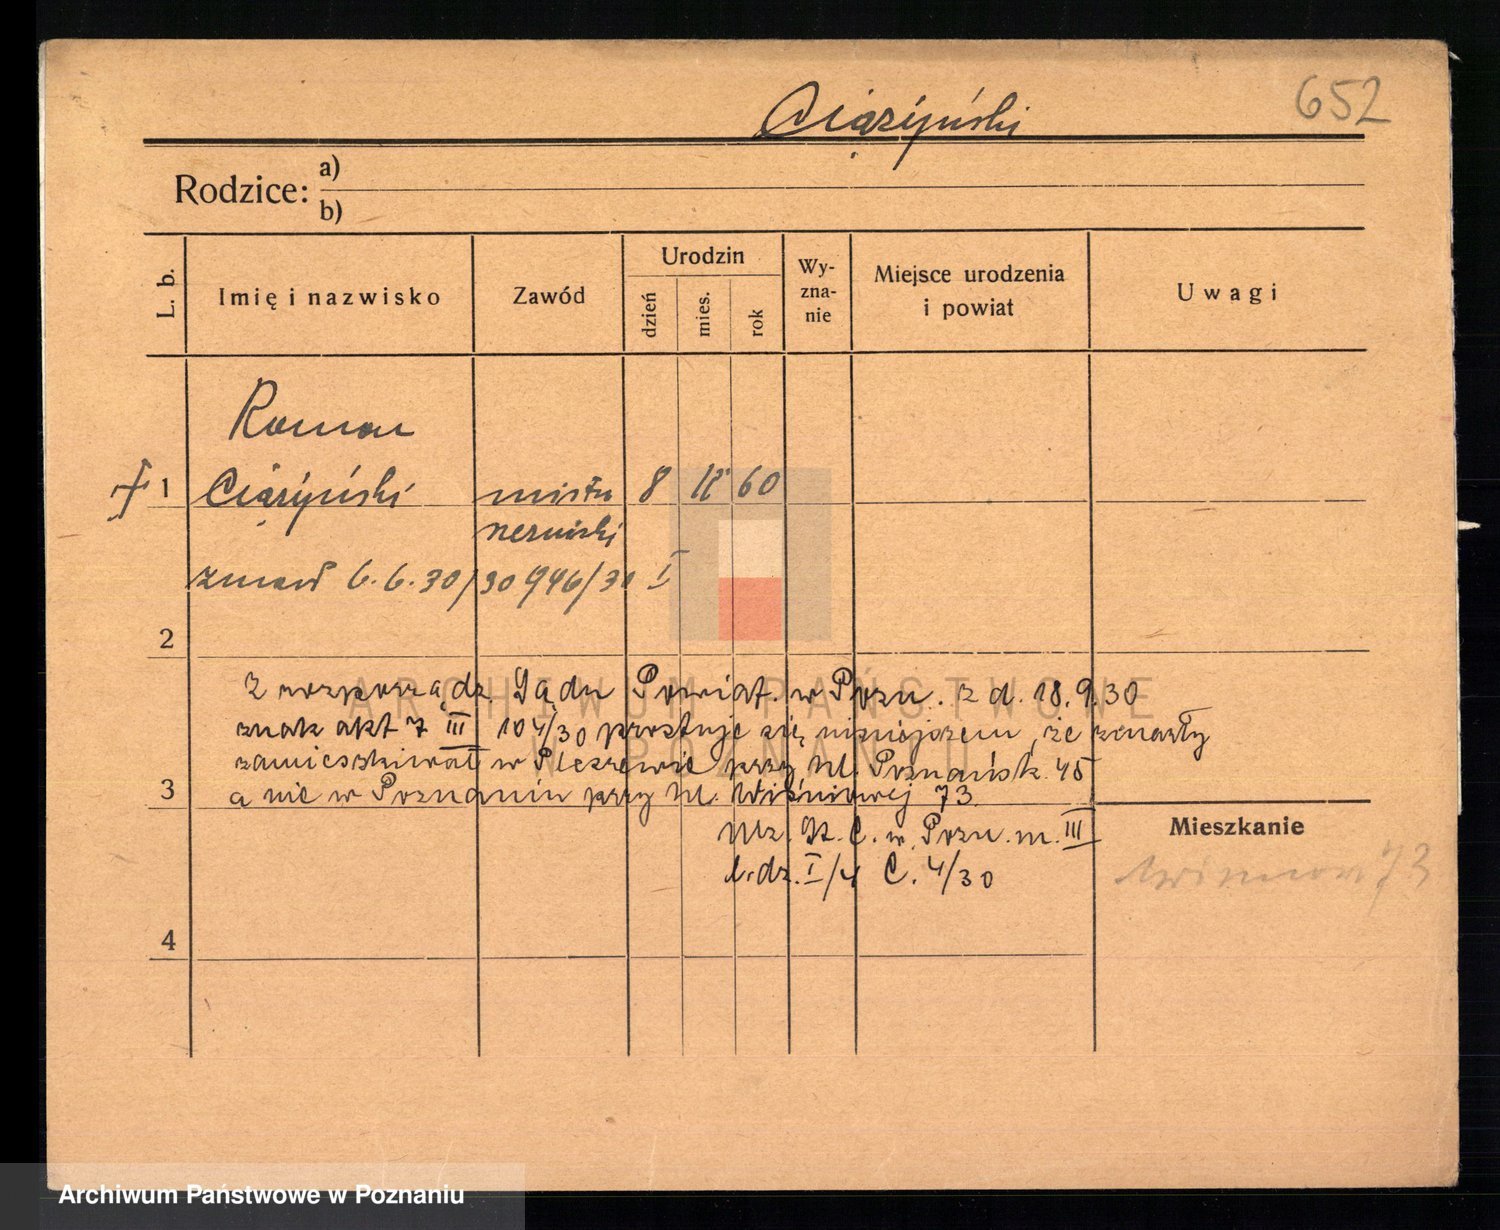 652
Ciążyński
Rodzice: a)
b)
L. b.
Imię i nazwisko
Zawód
Urodzin
dzień
mies.
rok
Wy-
zna-
nie
Miejsce urodzenia
i powiat
Uwagi
Roman
1 Ciążyński mistrz 8 II 60
zmarł 6.6.30/30 946/30 I
2
Z rozporządz. Sądu Powiat. w Pozn. z d. 18.9.30
znak akt 7 III 104/30 prostuje się niniejszem, że zmarły
zamieszkiwał w Pleszewie przy ul. Poznańsk. 45
3 a nie w Poznaniu przy ul. Wiśniowej 73.
Urz. St. C. w Pozn. m. III
l. dz. I/4 C. 4/30
Mieszkanie
73
4
ARCHIWUM PAŃSTWOWE
W POZNANIU
Archiwum Państwowe w Poznaniu